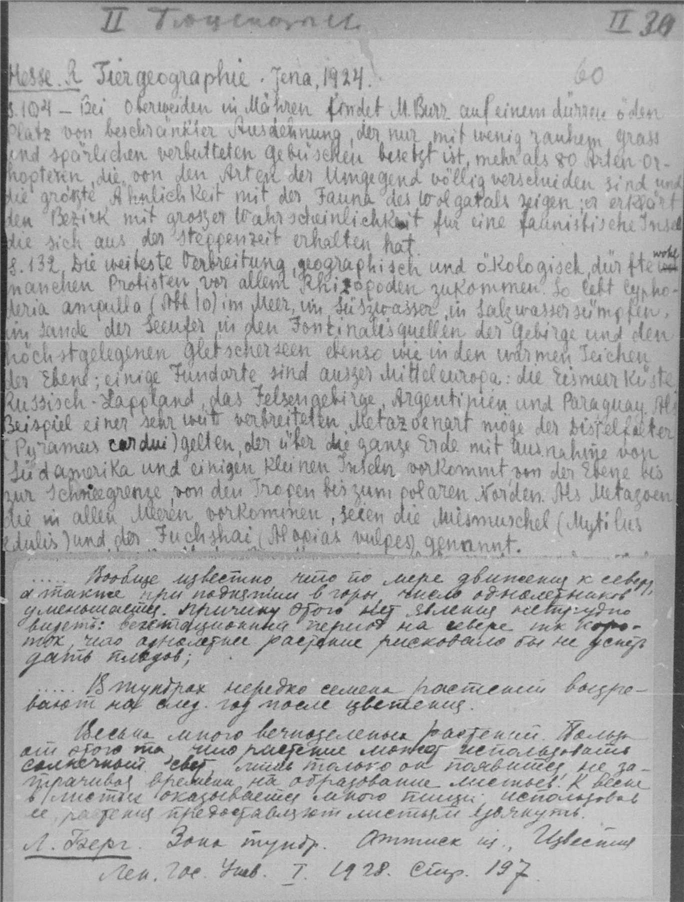 II II 39
60
Hesse. R Tiergeographie. Jena, 1924.
S. 104 – Bei Oberweiden in Mähren findet M. Burr auf einem dürren öden
Platz von beschränkter Ausdehnung, der nur mit wenig rauhem grass
und spärlichen verbutteten Gebüschen besetzt ist, mehr als 80 Arten Or-
thopteria, die von den Arten der Umgegend völlig verschieden sind und
die grösste Ähnlichkeit mit der Fauna des Wolgatals zeigen; er erklärt
den Bezirk mit groszer Wahrscheinlichkeit für eine faunistische Insel
die sich aus der Steppenzeit erhalten hat.
S. 132. Die weiteste Verbreitung, geographisch und ökologisch, dürfte wohl
manchen Protisten vor allem Rhizopoden zukommen. So lebt Cypho-
deria ampulla (Abb 10) im Meer, im Süszwasser, in Salzwassersümpfen,
im Sande der Seeufer, in den Fontinalisquellen der Gebirge und den
höchstgelegenen Gletscherseen ebenso wie in den warmen Teichen
der Ebene; einige Fundorte sind auszer Mitteleuropa: die Eismeer Küste
Russisch-Lappland, das Felsengebirge, Argentinien und Paraguay. Als
Beispiel einer sehr weit verbreiteten Metazoenart möge der Distelfalter
(Pyrameus cardui) gelten, der über die ganze Erde mit Ausnahme von
Südamerika und einigen kleinen Inseln vorkommt von der Ebene bis
zur Schneegrenze von den Tropen bis zum polaren Norden. Als Metazoen
die in allen Meeren vorkommen, seien die Miesmuschel (Mytilus
edulis) und der Fuchshai (Alopias vulpes) genannt.
..... Вообще известно что по мере движения к северу,
а также при поднятии в горы, число однолетников
уменьшается. Причину этого явления нетрудно
видеть: вегетационный период на севере так корот-
ток, что однолетнее растение рисковало бы не успеть
дать плодов;
..... В тундрах нередко семена растений вызре-
вают на след. год после цветения.
Весьма много вечнозеленых растений. Польза
от этого та что растение может использовать
солнечный свет лишь только он появится не за-
трачивая времени на образование листьев. К весне
в листьях оказывается много пищи; использовав
ее, растения предоставляют листьям засохнуть.
Л. Берг. Зона тундр. Оттиск из „Известия
Лен. Гос. Унив. I. 1928. Стр. 197.